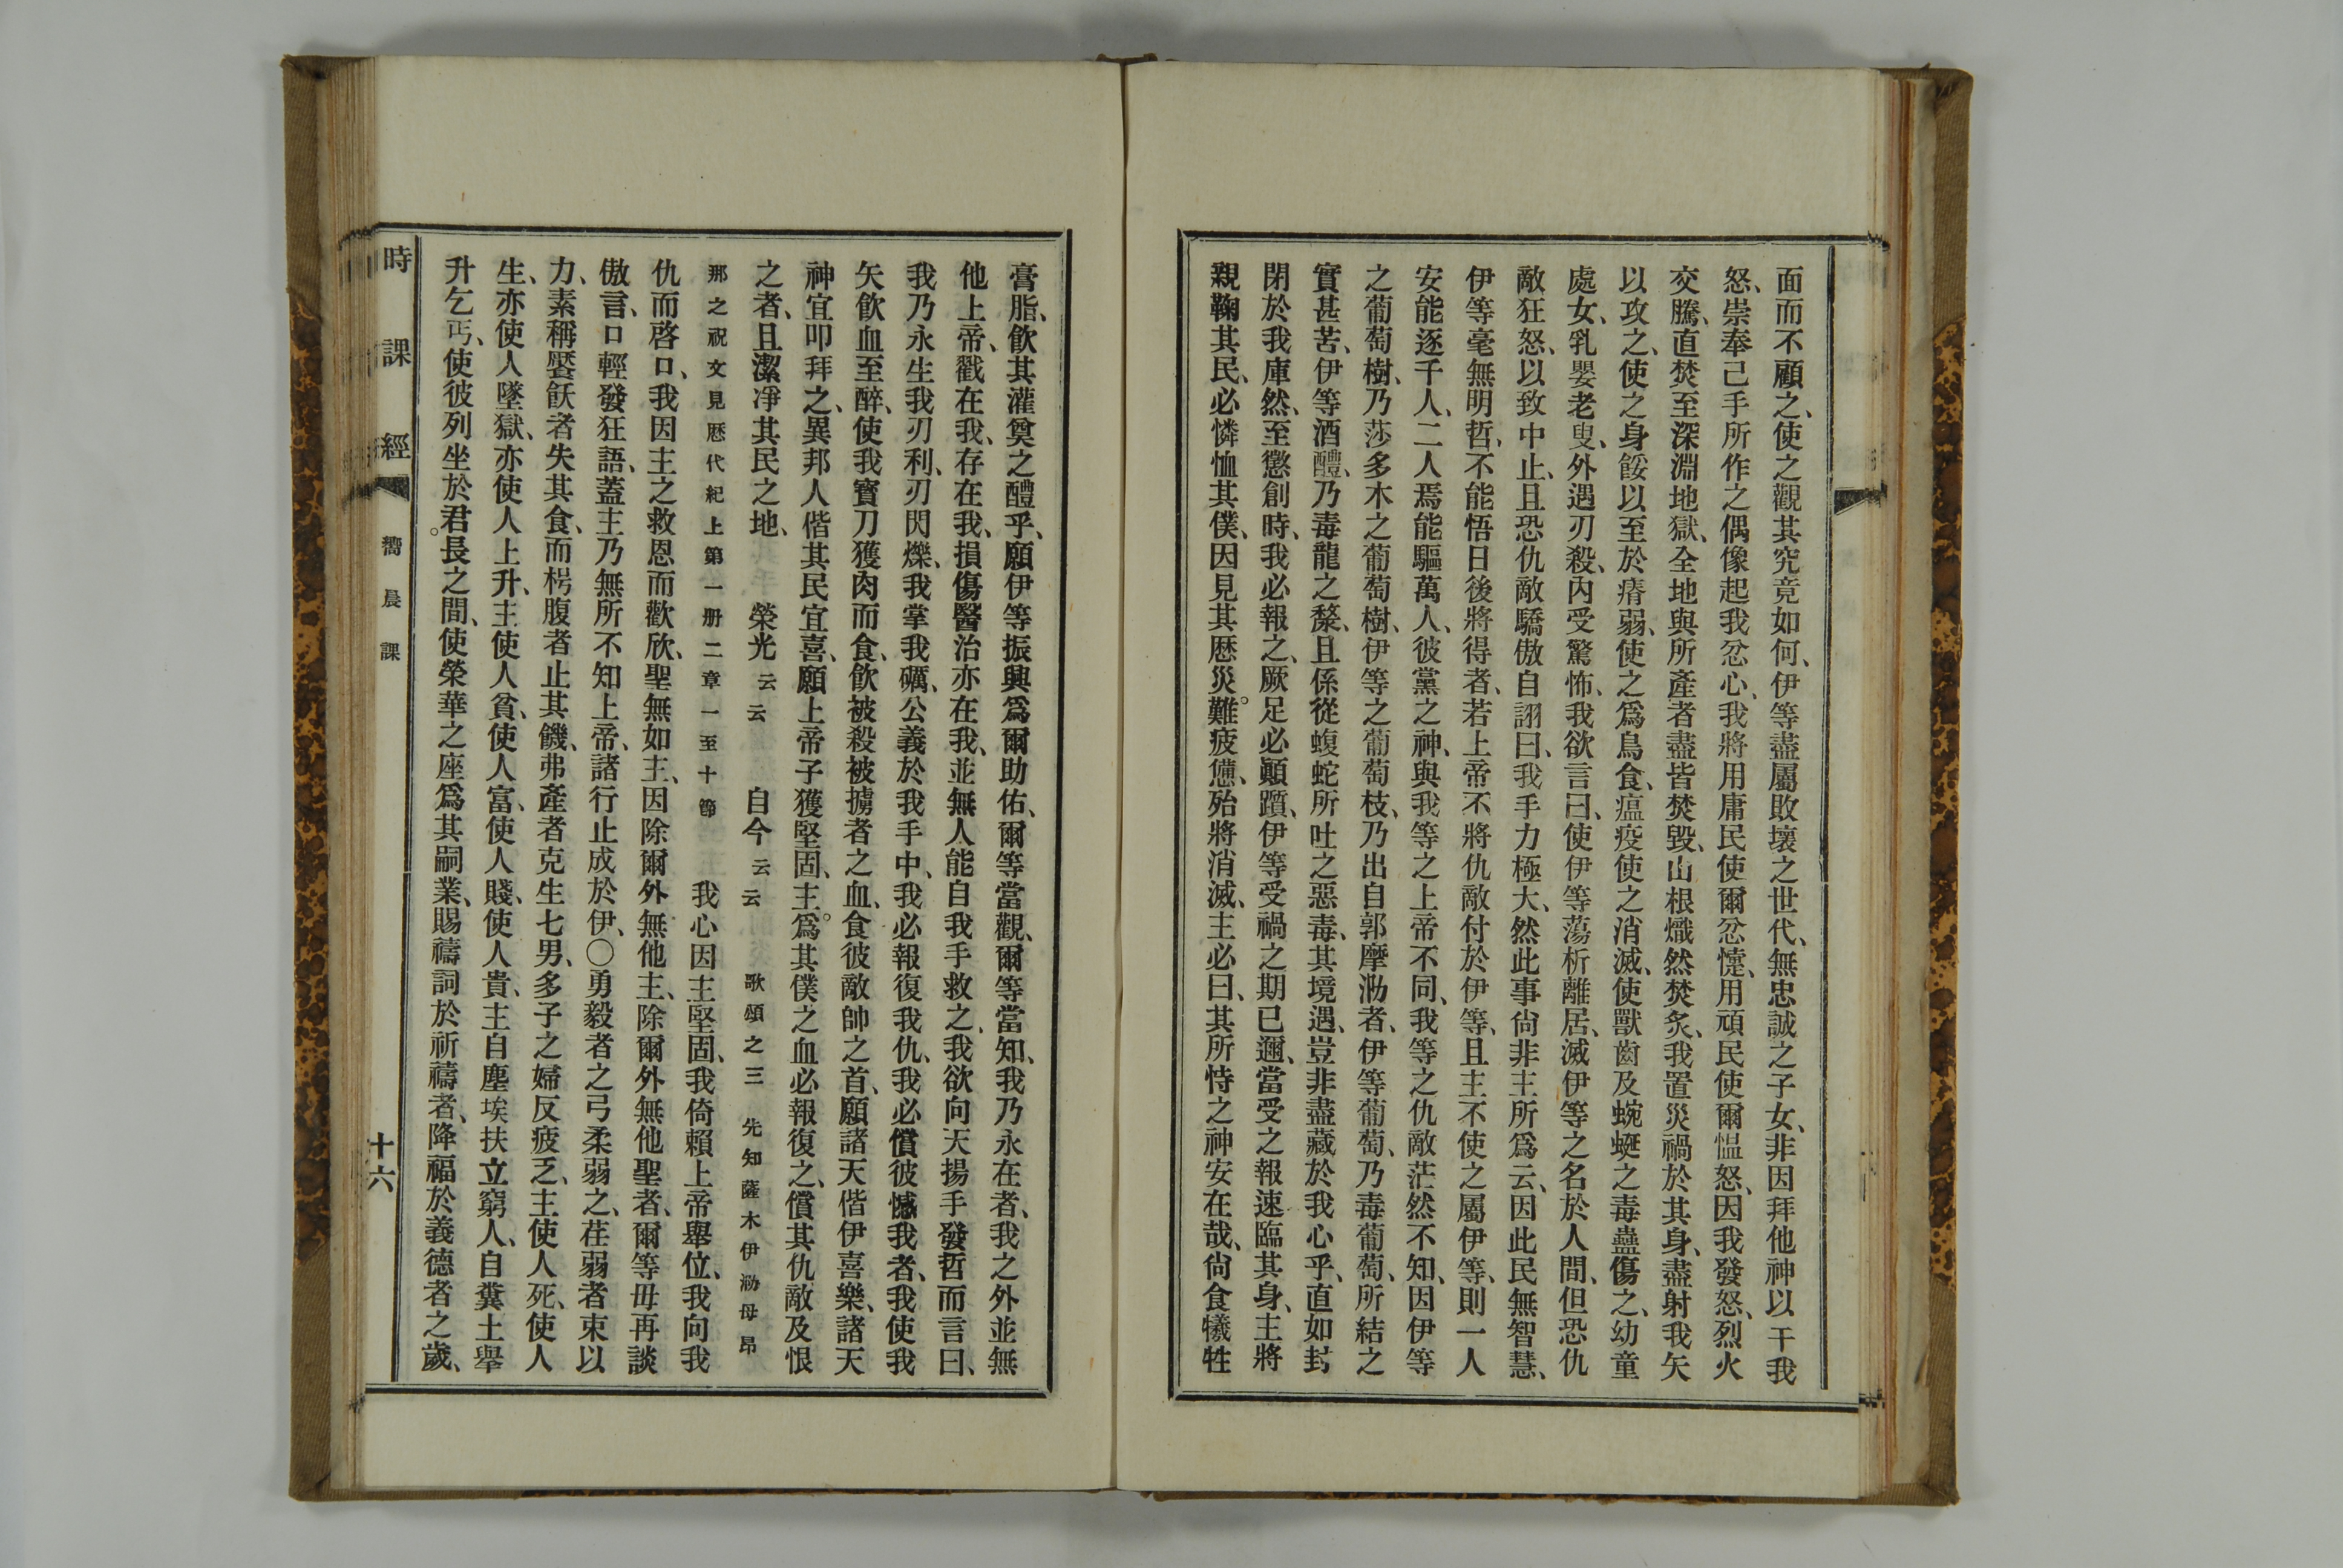 面而不顧之、使之觀其究竟如何、伊等盡屬敗壞之世代、無忠誠之子女、非因拜他神以干我
怒、崇奉己手所作之偶像起我忿心、我將用庸民使爾忿懥、用頑民使爾慍怒、因我發怒、烈火
交騰、直焚至深淵地獄、全地與所產者盡皆焚毀、山根熾然焚炙、我置災禍於其身、盡射我矢
以攻之、使之身餒以至於瘠弱、使之爲鳥食、瘟疫使之消滅、使獸齒及蜿蜒之毒蠱傷之、幼童
處女、乳嬰老叟、外遇刃殺、內受驚怖、我欲言曰、使伊等蕩析離居、滅伊等之名於人間、但恐仇
敵狂怒、以致中止、且恐仇敵驕傲自詡曰、我手力極大、然此事尙非主所爲云、因此民無智慧、
伊等毫無明哲、不能悟日後將得者、若上帝不將仇敵付於伊等、且主不使之屬伊等、則一人
安能逐千人、二人焉能驅萬人、彼黨之神、與我等之上帝不同、我等之仇敵茫然不知、因伊等
之葡萄樹、乃莎多木之葡萄樹、伊等之葡萄枝、乃出自郭摩泐者、伊等葡萄、乃毒葡萄、所結之
實甚苦、伊等酒醴、乃毒龍之漦、且係從蝮蛇所吐之惡毒、其境遇、豈非盡藏於我心乎、直如封
閉於我庫然、至懲創時、我必報之、厥足必顚躓、伊等受禍之期已邇、當受之報速臨其身、主將
親鞠其民、必憐恤其僕、因見其歷災難。疲憊、殆將消滅、主必曰、其所恃之神安在哉、尙食犧牲
膏脂、飲其灌奠之醴乎、願伊等振興爲爾助佑、爾等當觀、爾等當知、我乃永在者、我之外並無
他上帝、戳在我、存在我、損傷醫治亦在我、並無人能自我手救之、我欲向天揚手發哲而言曰、
我乃永生我刃利、刃閃爍、我掌我礪、公義於我手中、我必報復我仇、我必償彼憾我者、我使我
矢飲血至醉、使我寳刀獲肉而食、飲被殺被擄者之血、食彼敵帥之首、願諸天偕伊喜樂、諸天
神宜叩拜之、異邦人偕其民宜喜、願上帝子獲堅固、主。爲其僕之血必報復之、償其仇敵及恨
之者、且潔凈其民之地、　榮光云云　自今云云　歌頌之三　先知薩木伊泐母昂
那之祝文見歷代紀上第一册二章一至十節　我心因主堅固、我倚賴上帝舉位、我向我
仇而啓口、我因主之救恩而歡欣、聖無如主、因除爾外無他主、除爾外無他聖者、爾等毋再談
傲言、口輕發狂語、蓋主乃無所不知上帝、諸行止成於伊、〇勇毅者之弓柔弱之、荏弱者束以
力、素稱饜飫者失其食、而枵腹者止其饑、弗產者克生七男、多子之婦反疲乏、主使人死、使人
生、亦使人墜獄、亦使人上升、主使人貧、使人富、使人賤、使人貴、主自塵埃扶立窮人、自糞土舉
升乞丐、使彼列坐於君。長之間、使榮華之座爲其嗣業、賜禱詞於祈禱者、降福於義德者之歲、
時課經　嚮晨課　十六